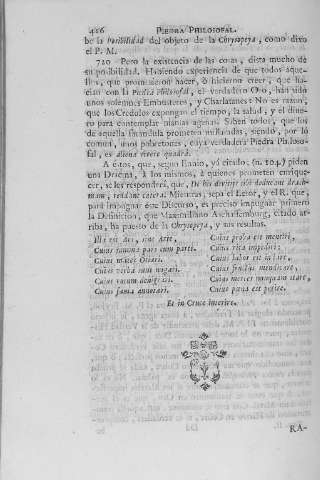 426 PIEDRA PHILOSOFAL.
be la Posibilidad del objeto de la Chrysopeya, como dixo
el P. M.
720 Pero la existencia de las cosas, dista mucho de
su posibilidad. Habiendo experiencia de que todos aque-
llos, que prometieron hacer, ò hicieron creer, que ha-
cian con la Piedra Philosofal, el verdadero Oro, han sido
unos solemnes Embusteros, y Charlatanes: No es razon,
que los Credulos expongan el tiempo, la salud, y el dine-
ro para contemplar manias agenas. Sabèn todos, que los
de aquella farandula prometen millaradas, siendo, por lo
comun, unos pobretones, cuya verdadera Piedra Philoso-
fal, es aliena vivere quadra.
A estos, que, segun Ennio, yà citado, (n. 104.) piden
una Dracma, à los mismos, à quienes prometen enrique-
cer, se les responderà, que, De his divitijs sibi deducant drach-
mam, reddant cætera. Mientras, sepa el Lector, y el R. que,
para impugnar este Discurso, es preciso impugnar primero
la Definicion, que Maximiliano Aschaffemburg, citado ar-
riba, ha puesto de la Chrysopeya, y sus resultas.
Illa est Ars, sine Arte, Cuius proba est mentiri,
Cuius summa pars cum parti. Cuius vita impoliri:
Cuius mater Otiari. Cuius labor est in lare,
Cuius verba sunt nugari. Cuius finalis mendicare,
Cuius vacum denigrari. Cuius merces nunquam stare,
Cuius fama annotari. Cuius pœna est perire.
Et in Cruce interire.
RA-